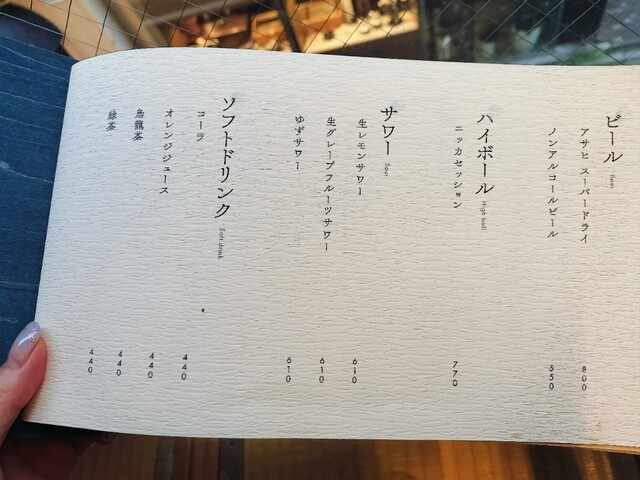 ビール Beer
アサヒ スーパードライ 800
ノンアルコールビール 550
ハイボール High ball
ニッカセッション 770
サワー Sour
生レモンサワー 610
生グレープフルーツサワー 610
ゆずサワー 610
ソフトドリンク Soft drink
コーラ 440
オレンジジュース 440
烏龍茶 440
緑茶 440